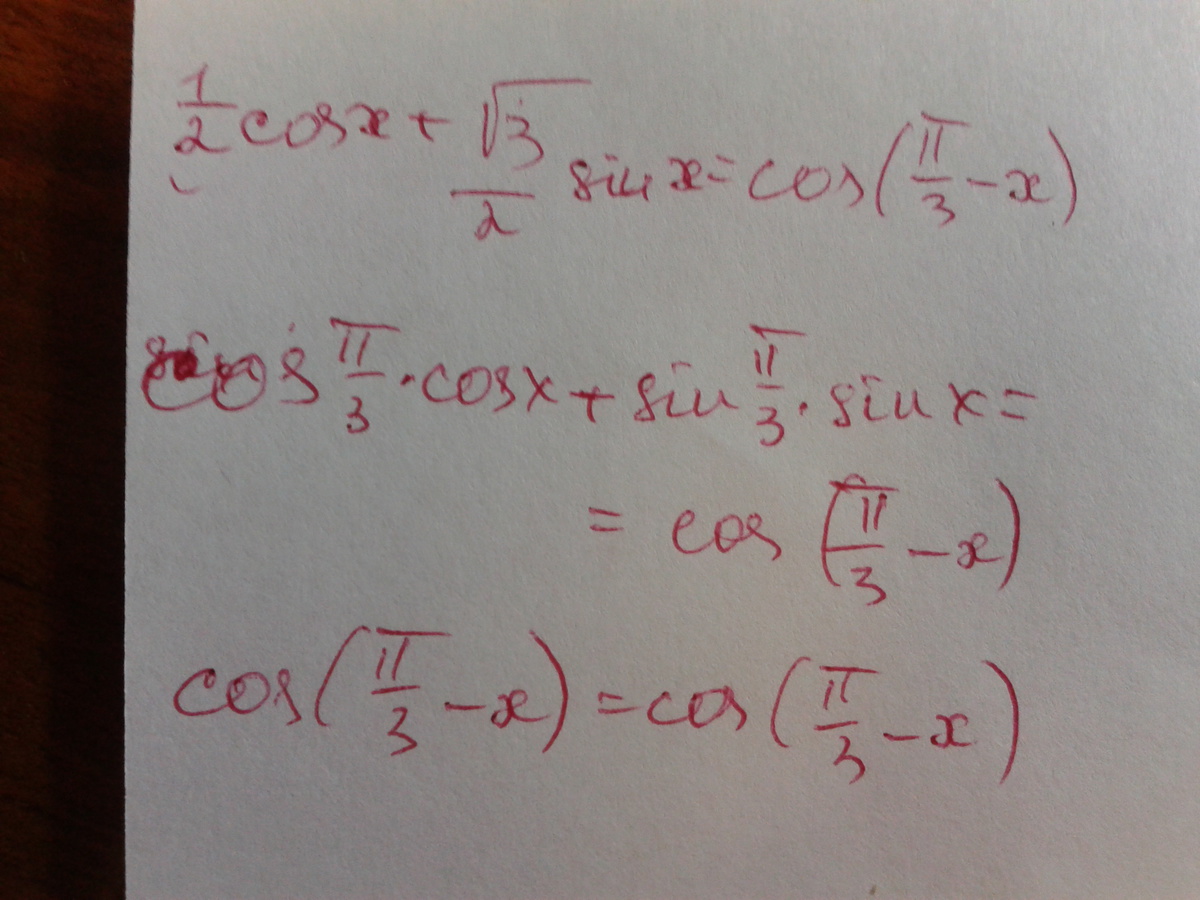 1/2 cosx + √3/2 sin x = cos(π/3 - x)
cos π/3 · cosx + sin π/3 · sin x =
= cos (π/3 - x)
cos(π/3 - x) = cos(π/3 - x)